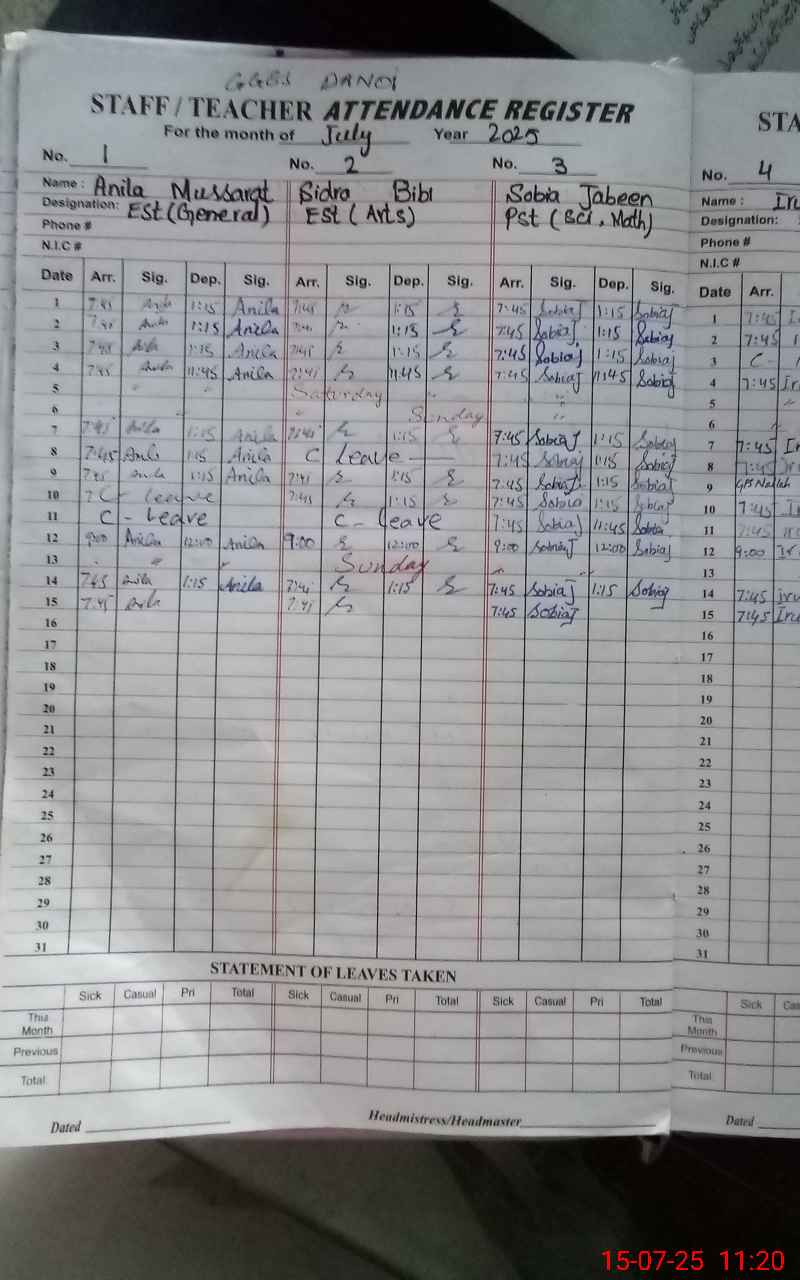 GGES DANOI
STAFF / TEACHER ATTENDANCE REGISTER
For the month of July Year 2025
No. 1 No. 2 No. 3 No. 4
Name : Anila Mussarat Sidra Bibi Sobia Jabeen Name : Iru
Designation: ESt (General) ESt (Arts) Pst (Sci, Math) Designation:
Phone # Phone #
N.I.C # N.I.C #
Date Arr. Sig. Dep. Sig. Arr. Sig. Dep. Sig. Arr. Sig. Dep. Sig. Date Arr.
1 7:45 Anila 1:15 Anila 7:45 1:15 7:45 SobiaJ 1:15 SobiaJ 1 7:45
2 7:45 Anila 1:15 Anila 7:45 1:15 7:45 SobiaJ 1:15 SobiaJ 2 7:45
3 7:45 Anila 1:15 Anila 7:45 1:15 7:45 SobiaJ 1:15 SobiaJ 3 C-
4 7:45 Anila 11:45 Anila 7:45 11:45 7:45 SobiaJ 11:45 SobiaJ 4 7:45 Iru
5 Saturday 5
6 Sunday 6
7 7:45 Anila 1:15 Anila 7:45 1:15 7:45 SobiaJ 1:15 SobiaJ 7 7:45
8 7:45 Anila 1:15 Anila C Leave 7:45 SobiaJ 1:15 SobiaJ 8 7:45
9 7:45 Anila 1:15 Anila 7:45 1:15 7:45 SobiaJ 1:15 SobiaJ 9
10 C- leave 7:45 1:15 7:45 Sobia 1:15 SobiaJ 10 7:45
11 C - Leave C - leave 7:45 SobiaJ 11:45 Sobia 11 7:45
12 9:00 Anila 12:00 Anila 9:00 12:00 9:00 SobiaJ 12:00 SobiaJ 12 9:00
13 Sunday 13
14 7:45 Anila 1:15 Anila 7:45 1:15 7:45 SobiaJ 1:15 SobiaJ 14 7:45 iru
15 7:45 Anila 7:45 7:45 SobiaJ 15 7:45 Iru
16 16
17 17
18 18
19 19
20 20
21 21
22 22
23 23
24 24
25 25
26 26
27 27
28 28
29 29
30 30
31 31
STATEMENT OF LEAVES TAKEN
Sick Casual Pri Total Sick Casual Pri Total Sick Casual Pri Total Sick Cas
This Month This Month
Previous Previous
Total Total
Dated Headmistress/Headmaster Dated
15-07-25 11:20